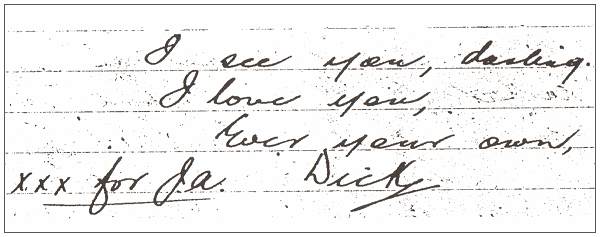 I see you, darling.
I love you,
Ever your own,
xxx for J.A. Dick